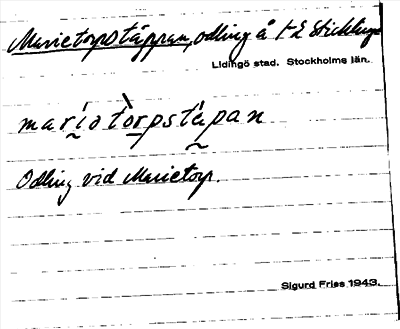 Marietorpstäppan, odling å 1-2 Sticklinge
Lidingö stad. Stockholms län.
maríotòrpstápan
Odling vid Marietorp.
Sigurd Fries 1943.